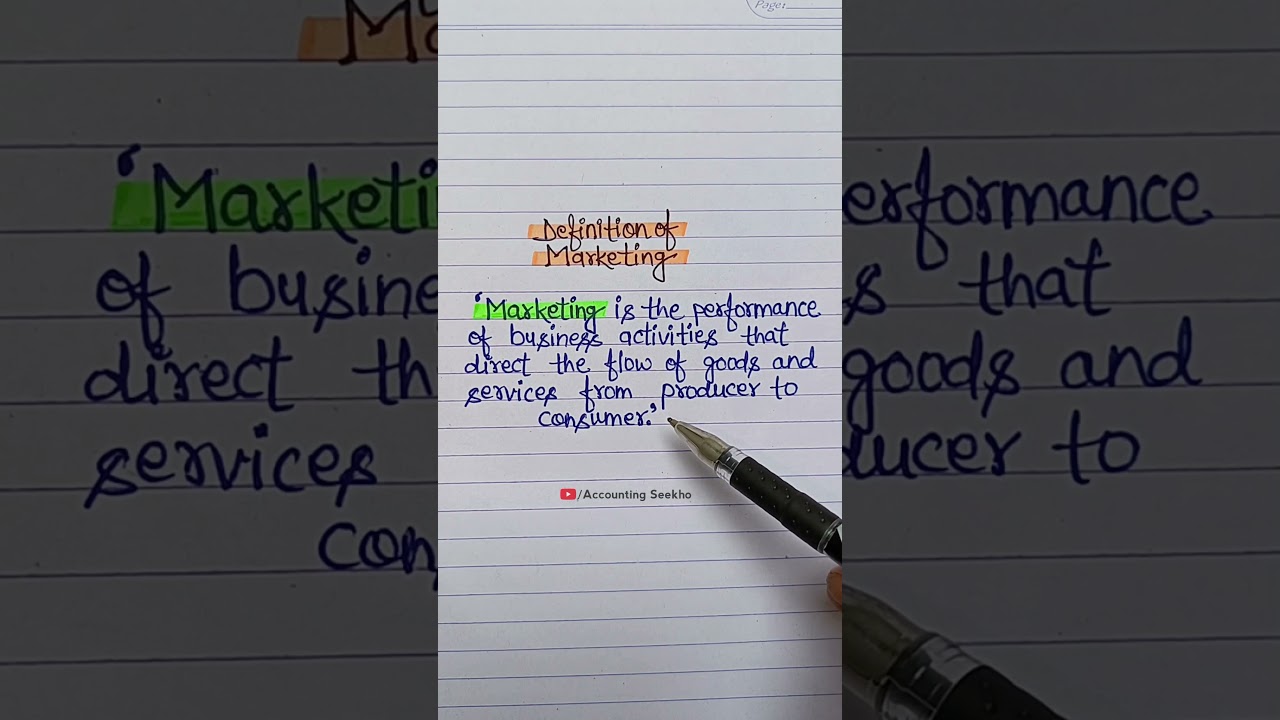 Page:
Definition of
Marketing
'Marketing is the performance
of business activities that
direct the flow of goods and
services from producer to
consumer.'
/Accounting Seekho